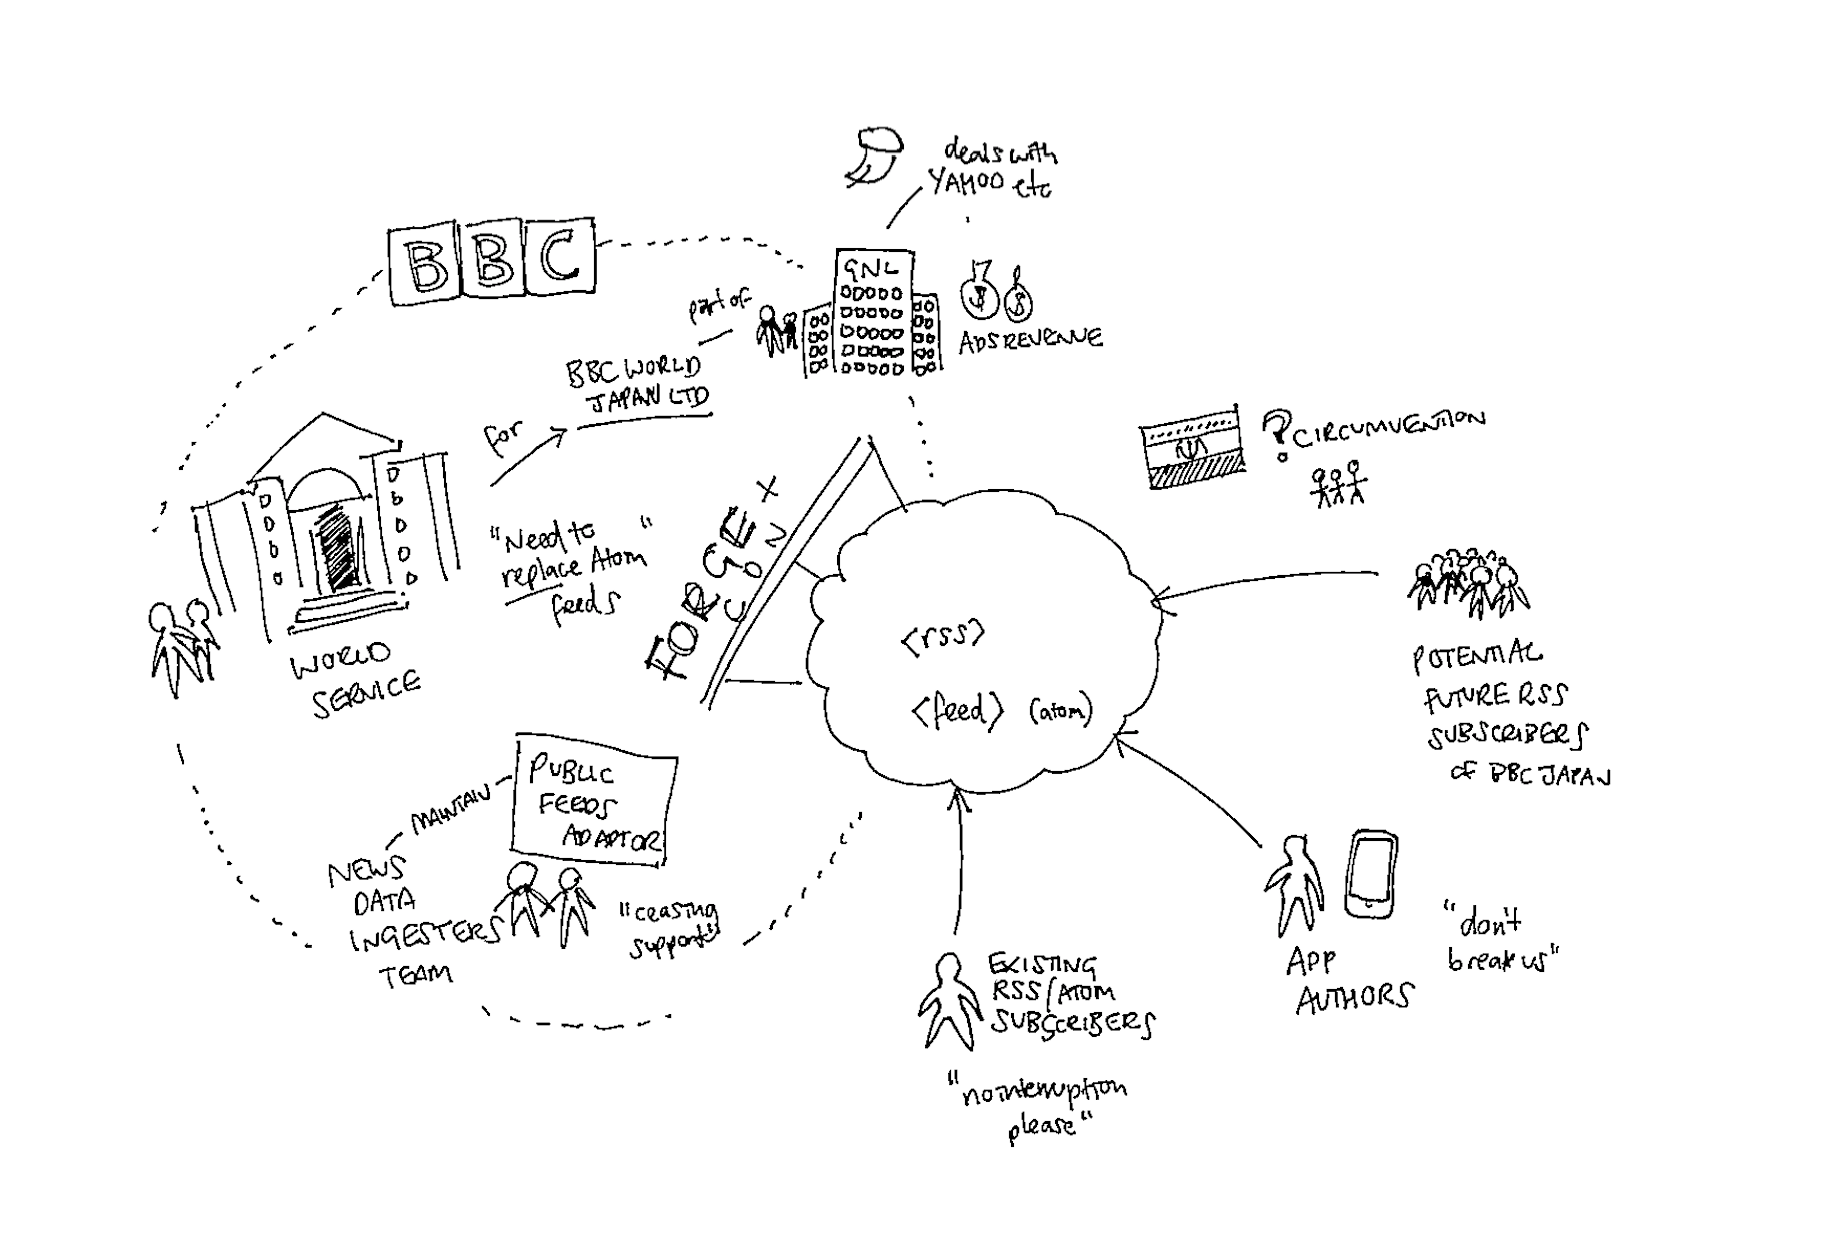 deals with
YAHOO etc
BBC
GNL
$ $
ADS REVENUE
part of
BBC WORLD
JAPAN LTD
for
? CIRCUMVENTION
"Need to
replace Atom
feeds"
FORGE
WORLD
SERVICE
<rss>
<feed> (atom)
POTENTIAL
FUTURE RSS
SUBSCRIBERS
OF BBC JAPAN
PUBLIC
FEEDS
ADAPTOR
MAINTAIN
NEWS
DATA
INGESTERS
TEAM
"ceasing
support"
APP
AUTHORS
"don't
break us"
EXISTING
RSS/ATOM
SUBSCRIBERS
"no interruption
please"